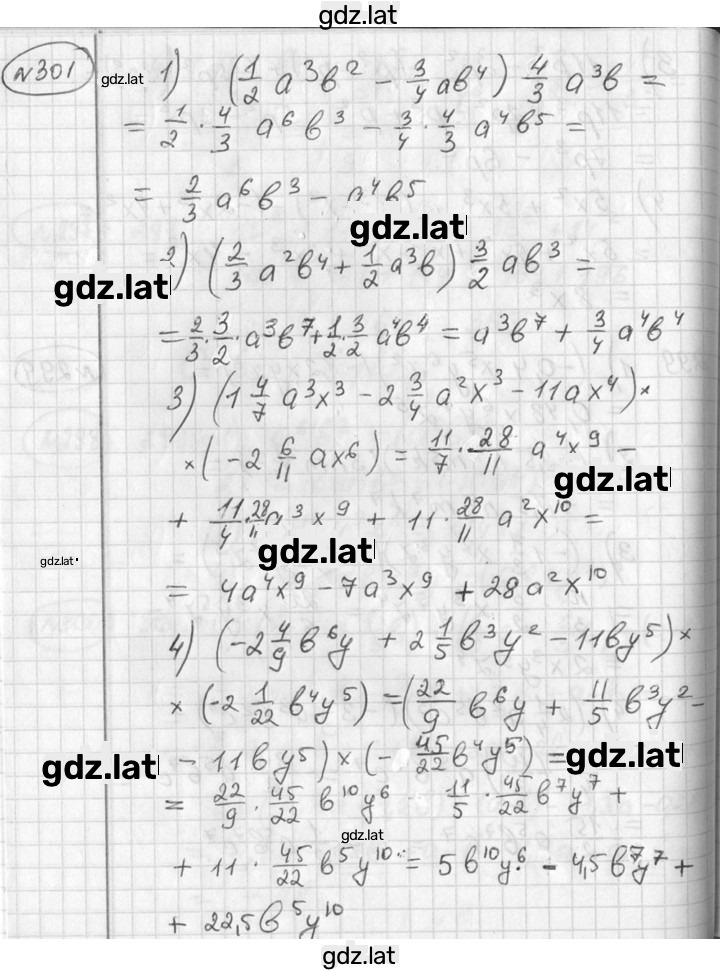 gdz.lat
№301 gdz.lat 1) (1/2 a³b² - 3/4 ab⁴) 4/3 a³b =
= 1/2 · 4/3 a⁶b³ - 3/4 · 4/3 a⁴b⁵ =
= 2/3 a⁶b³ - a⁴b⁵
gdz.lat
2) (2/3 a²b⁴ + 1/2 a³b) 3/2 ab³ =
gdz.lat
= 2/3 · 3/2 · a³b⁷ + 1/2 · 3/2 a⁴b⁴ = a³b⁷ + 3/4 a⁴b⁴
3) (1 4/7 a³x³ - 2 3/4 a²x³ - 11ax⁴) ×
× (-2 6/11 ax⁶) = 11/7 · 28/11 a⁴x⁹ -
gdz.lat
+ 11/4 · 28/11 a³x⁹ + 11 · 28/11 a²x¹⁰ =
gdz.lat
gdz.lat
= 4a⁴x⁹ - 7a³x⁹ + 28a²x¹⁰
4) (-2 4/9 b⁶y + 2 1/5 b³y² - 11by⁵) ×
× (-2 1/22 b⁴y⁵) = (22/9 b⁶y + 11/5 b³y² -
- 11by⁵) × (- 45/22 b⁴y⁵) =
gdz.lat
gdz.lat
= 22/9 · 45/22 b¹⁰y⁶ - 11/5 · 45/22 b⁷y⁷ +
gdz.lat
+ 11 · 45/22 b⁵y¹⁰ = 5b¹⁰y⁶ - 4,5b⁷y⁷ +
+ 22,5b⁵y¹⁰
gdz.lat